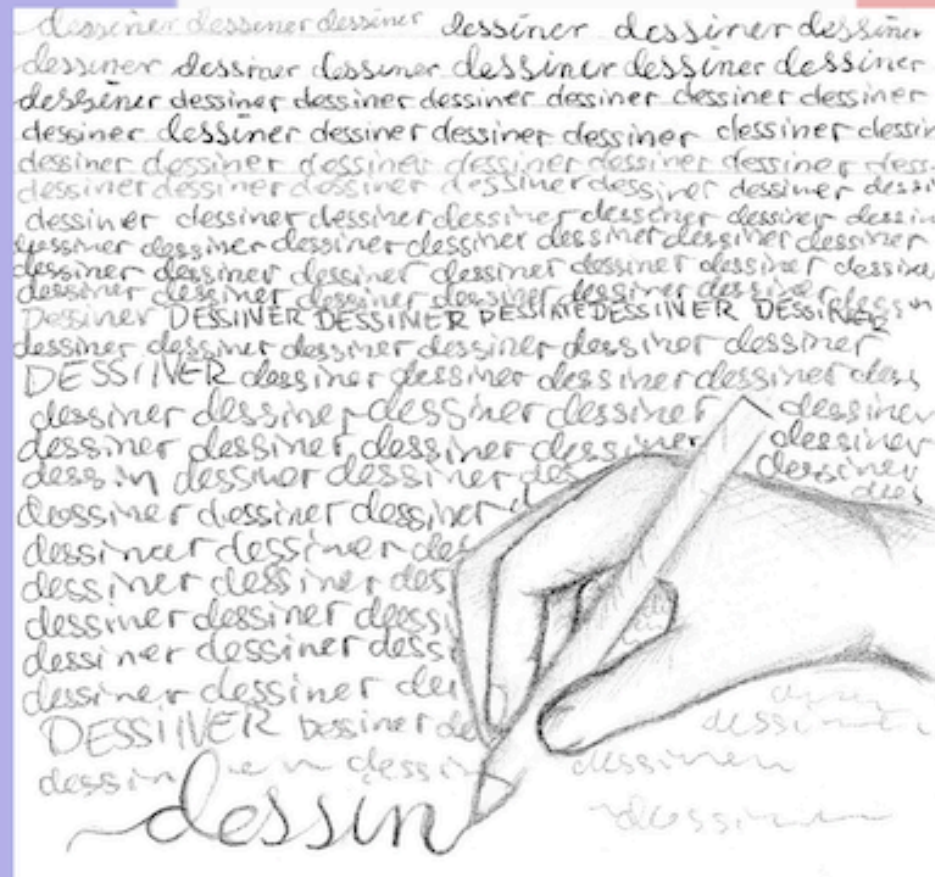 dessiner dessiner dessiner dessiner dessiner dessiner
dessiner dessiner dessiner dessiner dessiner dessiner
dessiner dessiner dessiner dessiner dessiner dessiner dessiner
dessiner dessiner dessiner dessiner dessiner dessiner dessin
dessiner dessiner dessiner dessiner dessiner dessiner dess
dessiner dessiner dessiner dessiner dessiner dessiner dessi
dessiner dessiner dessiner dessiner dessiner dessiner dessin
dessiner dessiner dessiner dessiner dessiner dessiner dessiner
dessiner dessiner dessiner dessiner dessiner dessiner dessine
dessiner dessiner dessiner dessiner dessiner dessiner dessin
Dessiner DESSINER DESSINER DESSINER DESSINER
dessiner dessiner dessiner dessiner dessiner dessiner
DESSINER dessiner dessiner dessiner dessiner dess
dessiner dessiner dessiner dessiner dessiner
dessiner dessiner dessiner dessiner dessiner
dessin dessiner dessiner des dessiner
dessiner dessiner dessiner des
dessiner dessiner des
dessiner dessiner des
dessiner dessiner dess
dessiner dessiner dess
dessiner dessiner de
DESSINER dessiner de dessin
dessin dessin dessiner
dessin